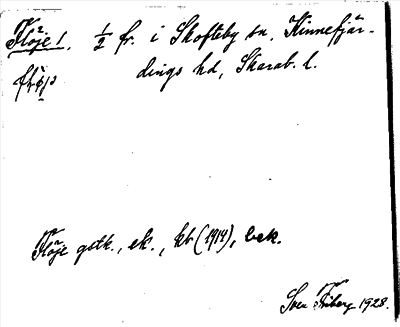 Flöje 1. 1/2 fr. i Skofteby sn. Kinnefjär-
dings hd, Skarab. l.
Flöje gstk., ek., kb (1914), bek.
Sven Friberg 1928.